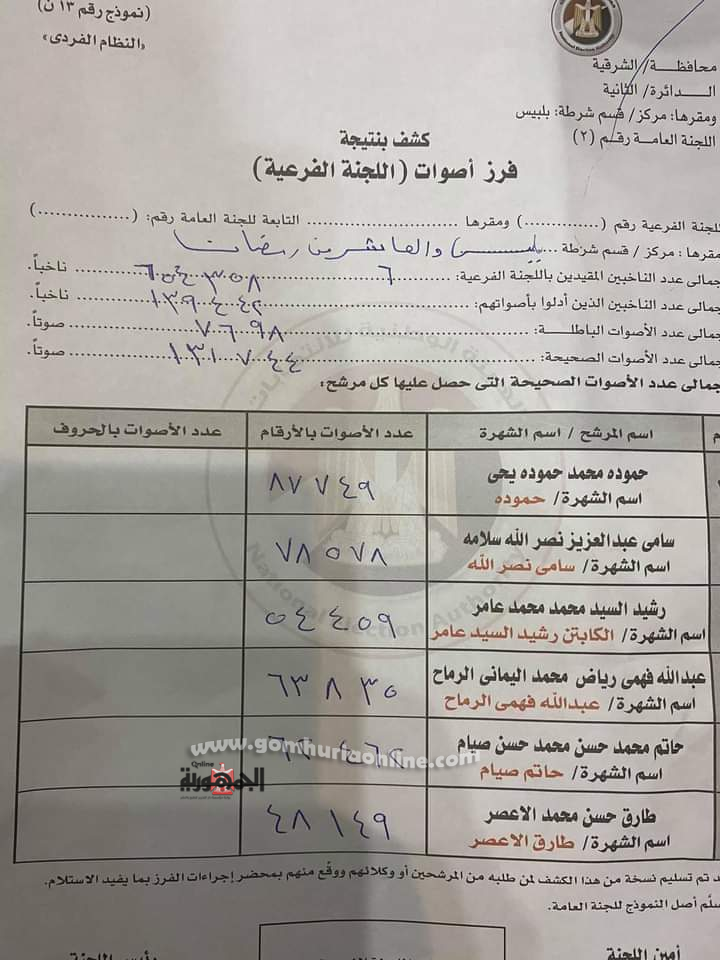 (نموذج رقم ١٣ ن)
«النظام الفردى»
National Election Authority
محافظة/ الشرقية
الدائرة/ الثانية
ومقرها: مركز/ قسم شرطة: بلبيس
اللجنة العامة رقم (٢)
كشف بنتيجة
فرز أصوات (اللجنة الفرعية)
لجنة الفرعية رقم (............) ومقرها ............................ التابعة للجنة العامة رقم: (................)
مقرها: مركز / قسم شرطة ... بلبيس والعاشر من رمضان
جمالى عدد الناخبين المقيدين باللجنة الفرعية: ناخباً.
جمالى عدد الناخبين الذين أدلوا بأصواتهم: ١٣٩٤٤٢ ناخباً.
جمالى عدد الأصوات الباطلة: ٧٦٩٨ صوتاً.
جمالى عدد الأصوات الصحيحة: ١٣١٧٤٤ صوتاً.
جمالى عدد الأصوات الصحيحة التى حصل عليها كل مرشح:
م اسم المرشح / اسم الشهرة عدد الأصوات بالأرقام عدد الأصوات بالحروف
حموده محمد حموده يحى
اسم الشهرة/ حموده
٨٧٧٤٩
سامى عبدالعزيز نصر الله سلامه
اسم الشهرة/ سامى نصر الله
٧٨٥٧٨
رشيد السيد محمد محمد عامر
اسم الشهرة/ الكابتن رشيد السيد عامر
٥٤٤٥٩
عبدالله فهمى رياض محمد اليمانى الرماح
اسم الشهرة/ عبدالله فهمى الرماح
٦٣٨٣٥
حاتم محمد حسن محمد حسن صيام
اسم الشهرة/ حاتم صيام
www.gomhuriaonline.com
Online
الجمهورية
طارق حسن محمد الاعصر
اسم الشهرة/ طارق الاعصر
٤٨١٤٩
د تم تسليم نسخة من هذا الكشف لمن طلبه من المرشحين أو وكلائهم ووقّع منهم بمحضر إجراءات الفرز بما يفيد الاستلام.
سلّم أصل النموذج للجنة العامة.
أمين اللجنة
رئيس اللجنة